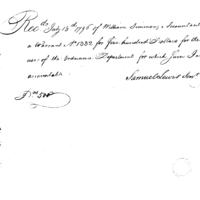 Recd. July 13th 1796 of William Simmons Accountant
a Warrant No. 1332 for five hundred Dollars for the
use of the Ordnance Department for which I am
accountable
Samuel Lewis Senr
Ds. 500